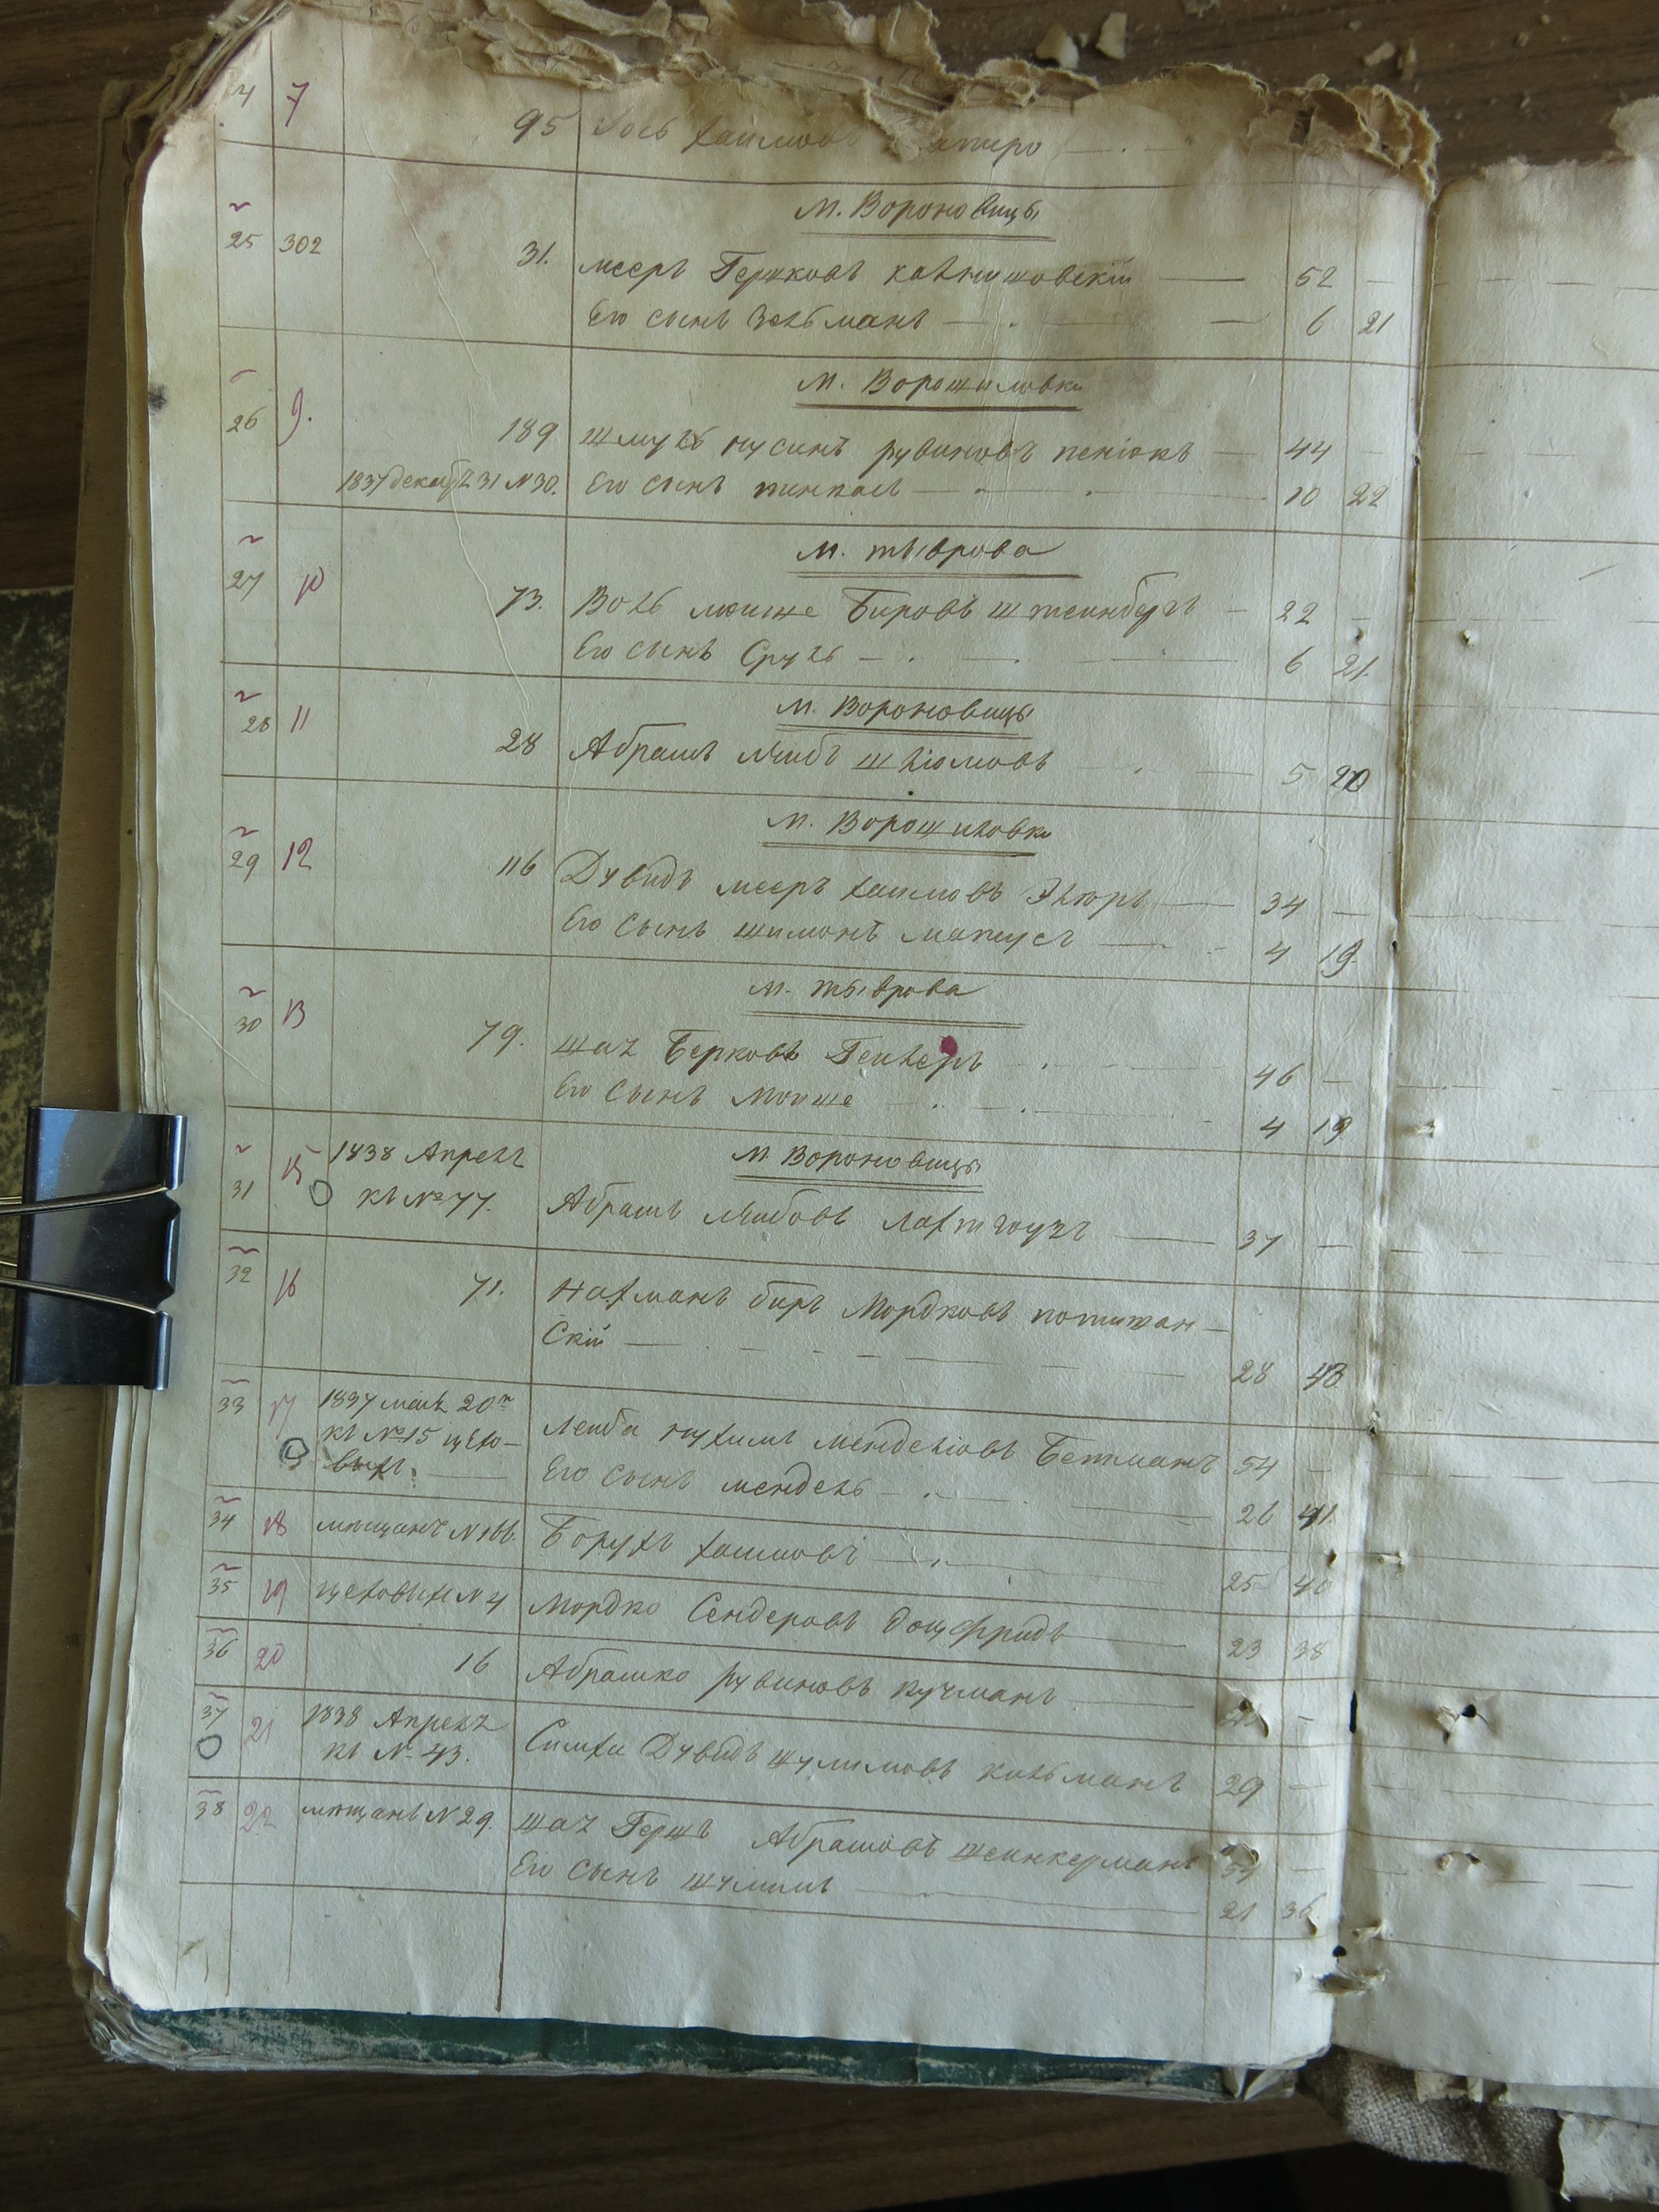 4 7 95 Хаимовъ
м. Вороновицы
25 302 31. мееръ Гершковъ калнишовскій — 52 —
Его сынъ Зельманъ — 6 21
м. Ворошиловки
26 9. 189 Шмуль нусинъ рувиновъ пеніокъ — 44 —
1837 декаб. 31 N 30. Его сынъ пинкас — 10 22
м. тыврова
27 10 73. Воль мойше Беровъ штеинбергъ — 22 —
Его сынъ Сруль — 6 21.
м. Вороновицы
28 11 28 Абрамъ Лейбъ шліомовъ — 5 20
м. Ворошиловки
29 12 116 Дувидъ мееръ хаимовъ Элюръ — 34 —
Его сынъ шимонъ матусъ — 4 19.
м. тыврова
30 13 79. шая Берковъ Геллеръ — 46 —
Его сынъ мойше — 4 19
31 15 1838 Апреля м. Вороновицы
кл №77. Абрамъ Лейбовъ лахтгоузъ — 37 —
32 16 71. Нахманъ беръ Мордковъ потижан—
скій — 28 43
33 17 1837 мая 20го
кл №15 цехо— Лейба нухимъ менделіовъ Бетманъ 54 —
выхъ. Его сынъ мендель — 26 41.
34 18 мещанъ N 166. Борухъ хаимовъ — 25 40
35 19 цеховыхъ N 4 Мордко Сендеровъ доцфридъ — 23 38
36 20 16 Абрашко рувиновъ кучманъ — —
37 21 1838 Апреля
кл № 43. Симха Дувидъ шулимовъ кольманъ 29 —
38 22 мещанъ N 29. шая Гершъ Абрамовъ шеинкерманъ 54 —
Его сынъ шулимъ — 21 36.